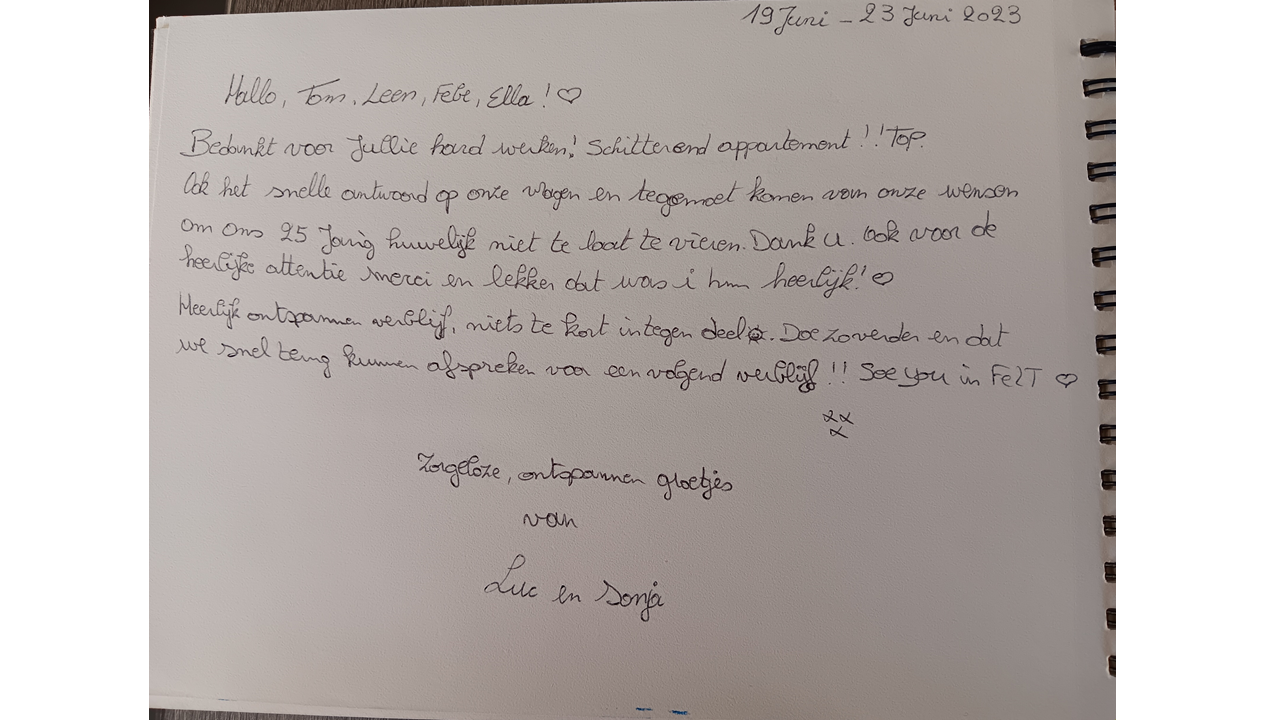 19 Juni - 23 Juni 2023
Hallo, Tom, Leen, Febe, Ella! ♡
Bedankt voor Jullie hard werken! Schitterend appartement!! Top.
Ook het snelle antwoord op onze vragen en tegemoet komen van onze wensen
om ons 25 Jarig huwelijk niet te laat te vieren. Dank u. Ook voor de
heerlijke attentie merci en lekker dat was i hmm heerlijk! ♡
Heerlijk ontspannen verblijf, niets te kort integen deel. Doe zo verder en dat
we snel terug kunnen afspreken voor een volgend verblijf!! See you in FelT ♡
xx
x
Zorgeloze, ontspannen groetjes
van
Luc en Sonja